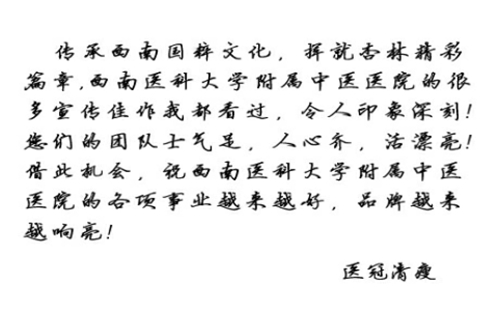 传承西南国粹文化，挥就杏林精彩
篇章，西南医科大学附属中医医院的很
多宣传佳作我都看过，令人印象深刻！
您们的团队士气足，人心齐，活漂亮！
借此机会，祝西南医科大学附属中医
医院的各项事业越来越好，品牌越来
越响亮！
医冠清瘦